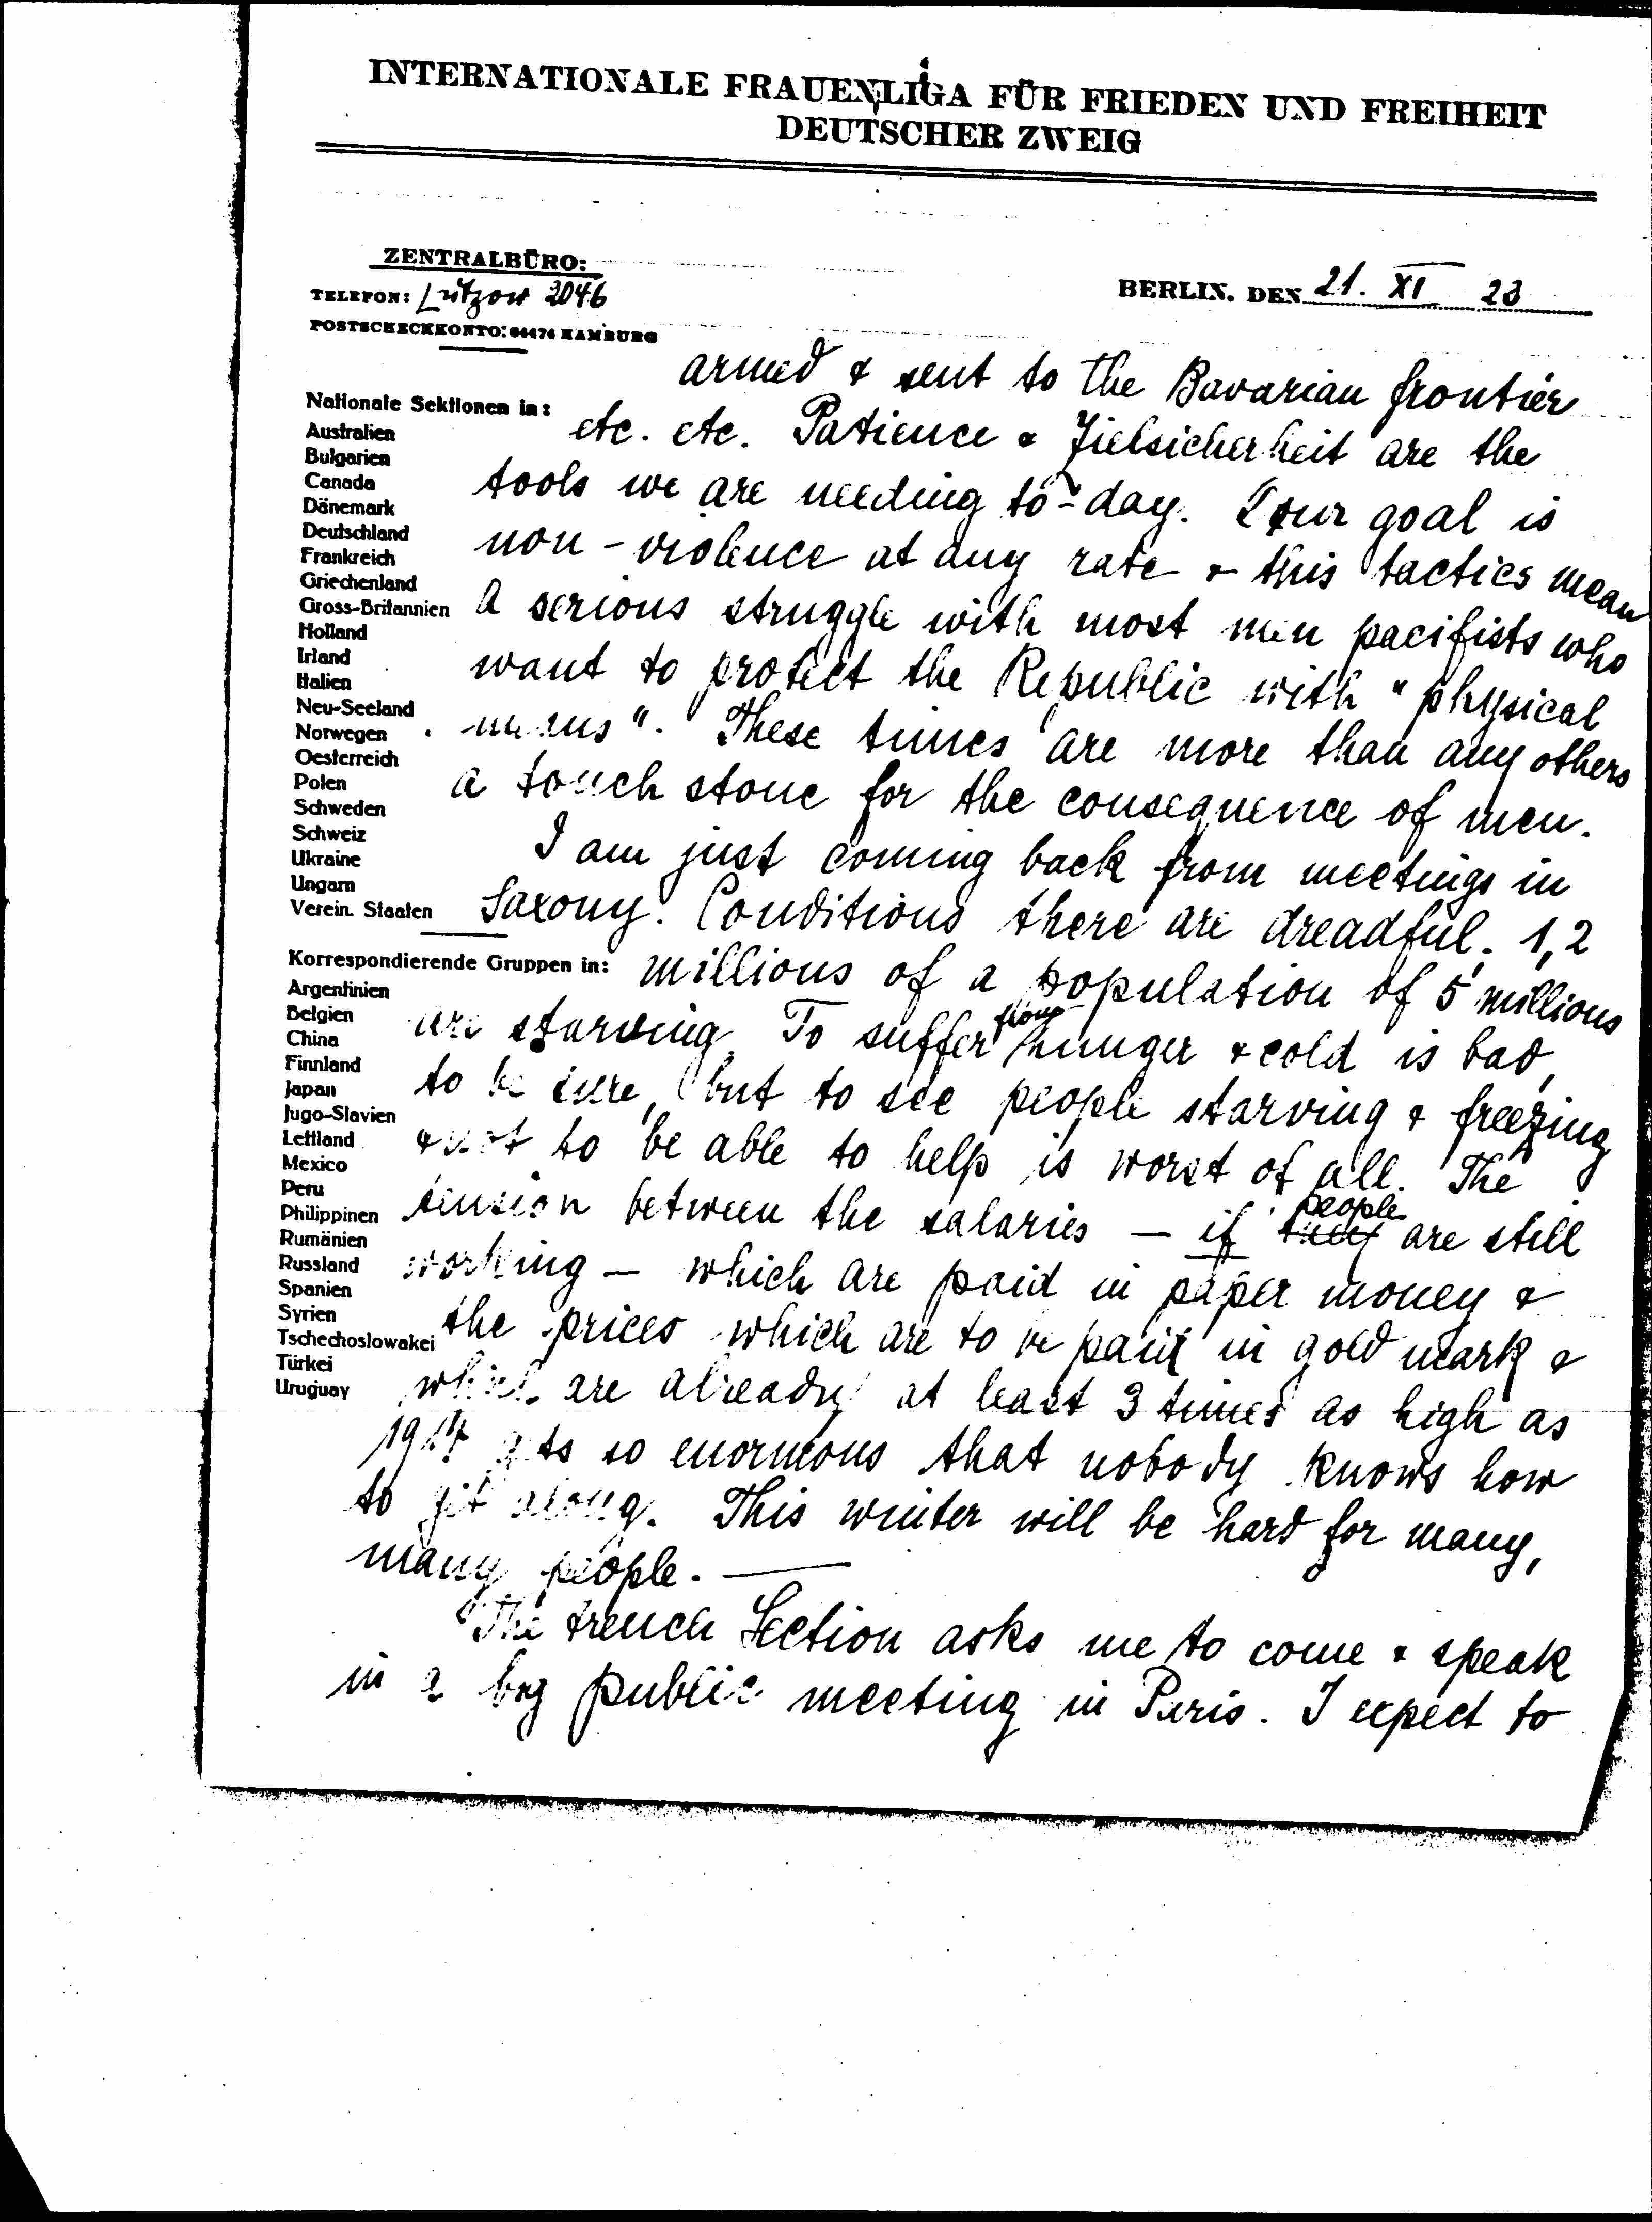 INTERNATIONALE FRAUENLIGA FÜR FRIEDEN UND FREIHEIT
DEUTSCHER ZWEIG
ZENTRALBÜRO:
TELEFON: Lützow 2046
POSTSCHECKKONTO: 64474 HAMBURG
BERLIN, DEN 21. XI 23
Nationale Sektionen in:
Australien
Bulgarien
Canada
Dänemark
Deutschland
Frankreich
Griechenland
Gross-Britannien
Holland
Irland
Italien
Neu-Seeland
Norwegen
Oesterreich
Polen
Schweden
Schweiz
Ukraine
Ungarn
Verein. Staaten
Korrespondierende Gruppen in:
Argentinien
Belgien
China
Finnland
Japan
Jugo-Slavien
Lettland
Mexico
Peru
Philippinen
Rumänien
Russland
Spanien
Syrien
Tschechoslowakei
Türkei
Uruguay
armed & sent to the Bavarian frontier
etc. etc. Patience & Zielsicherheit are the
tools we are needing to-day. Our goal is
non-violence at any rate & this tactics mean
a serious struggle with most men pacifists who
want to protect the Republic with "physical
means". These times are more than any others
a touch stone for the consequence of men.
I am just coming back from meetings in
Saxony. Conditions there are dreadful. 1,2
millions of a population of 5 millions
are starving. To suffer from hunger & cold is bad,
to be sure, but to see people starving & freezing
& not to be able to help is worst of all. The
tension between the salaries — if people are still
working — which are paid in paper money &
the prices which are to be paid in gold mark &
which are already at least 3 times as high as
1914 so enormous that nobody knows how
to git along. This winter will be hard for many,
many people. —
The French Section asks me to come & speak
in a big public meeting in Paris. I expect to